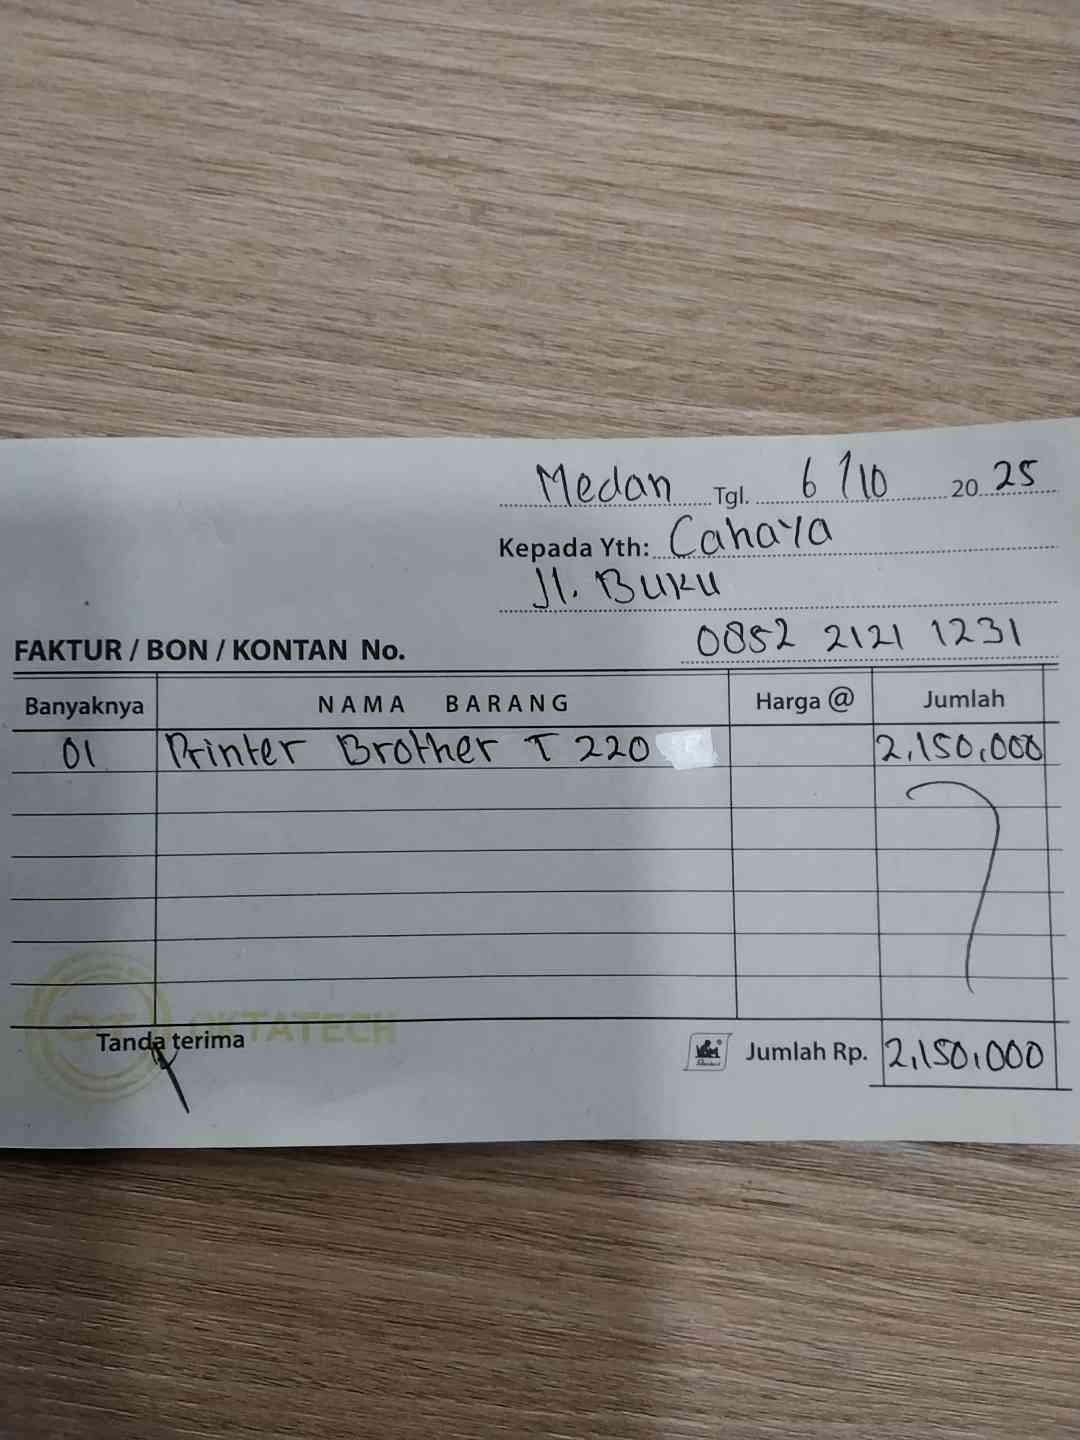 Medan Tgl. 6/10 2025
Kepada Yth: Cahaya
Jl. Buku
FAKTUR / BON / KONTAN No. 0852 2121 1231
Banyaknya NAMA BARANG Harga @ Jumlah
01 Printer Brother T 220 2,150,000
OKTATECH
Tanda terima Jumlah Rp. 2,150,000